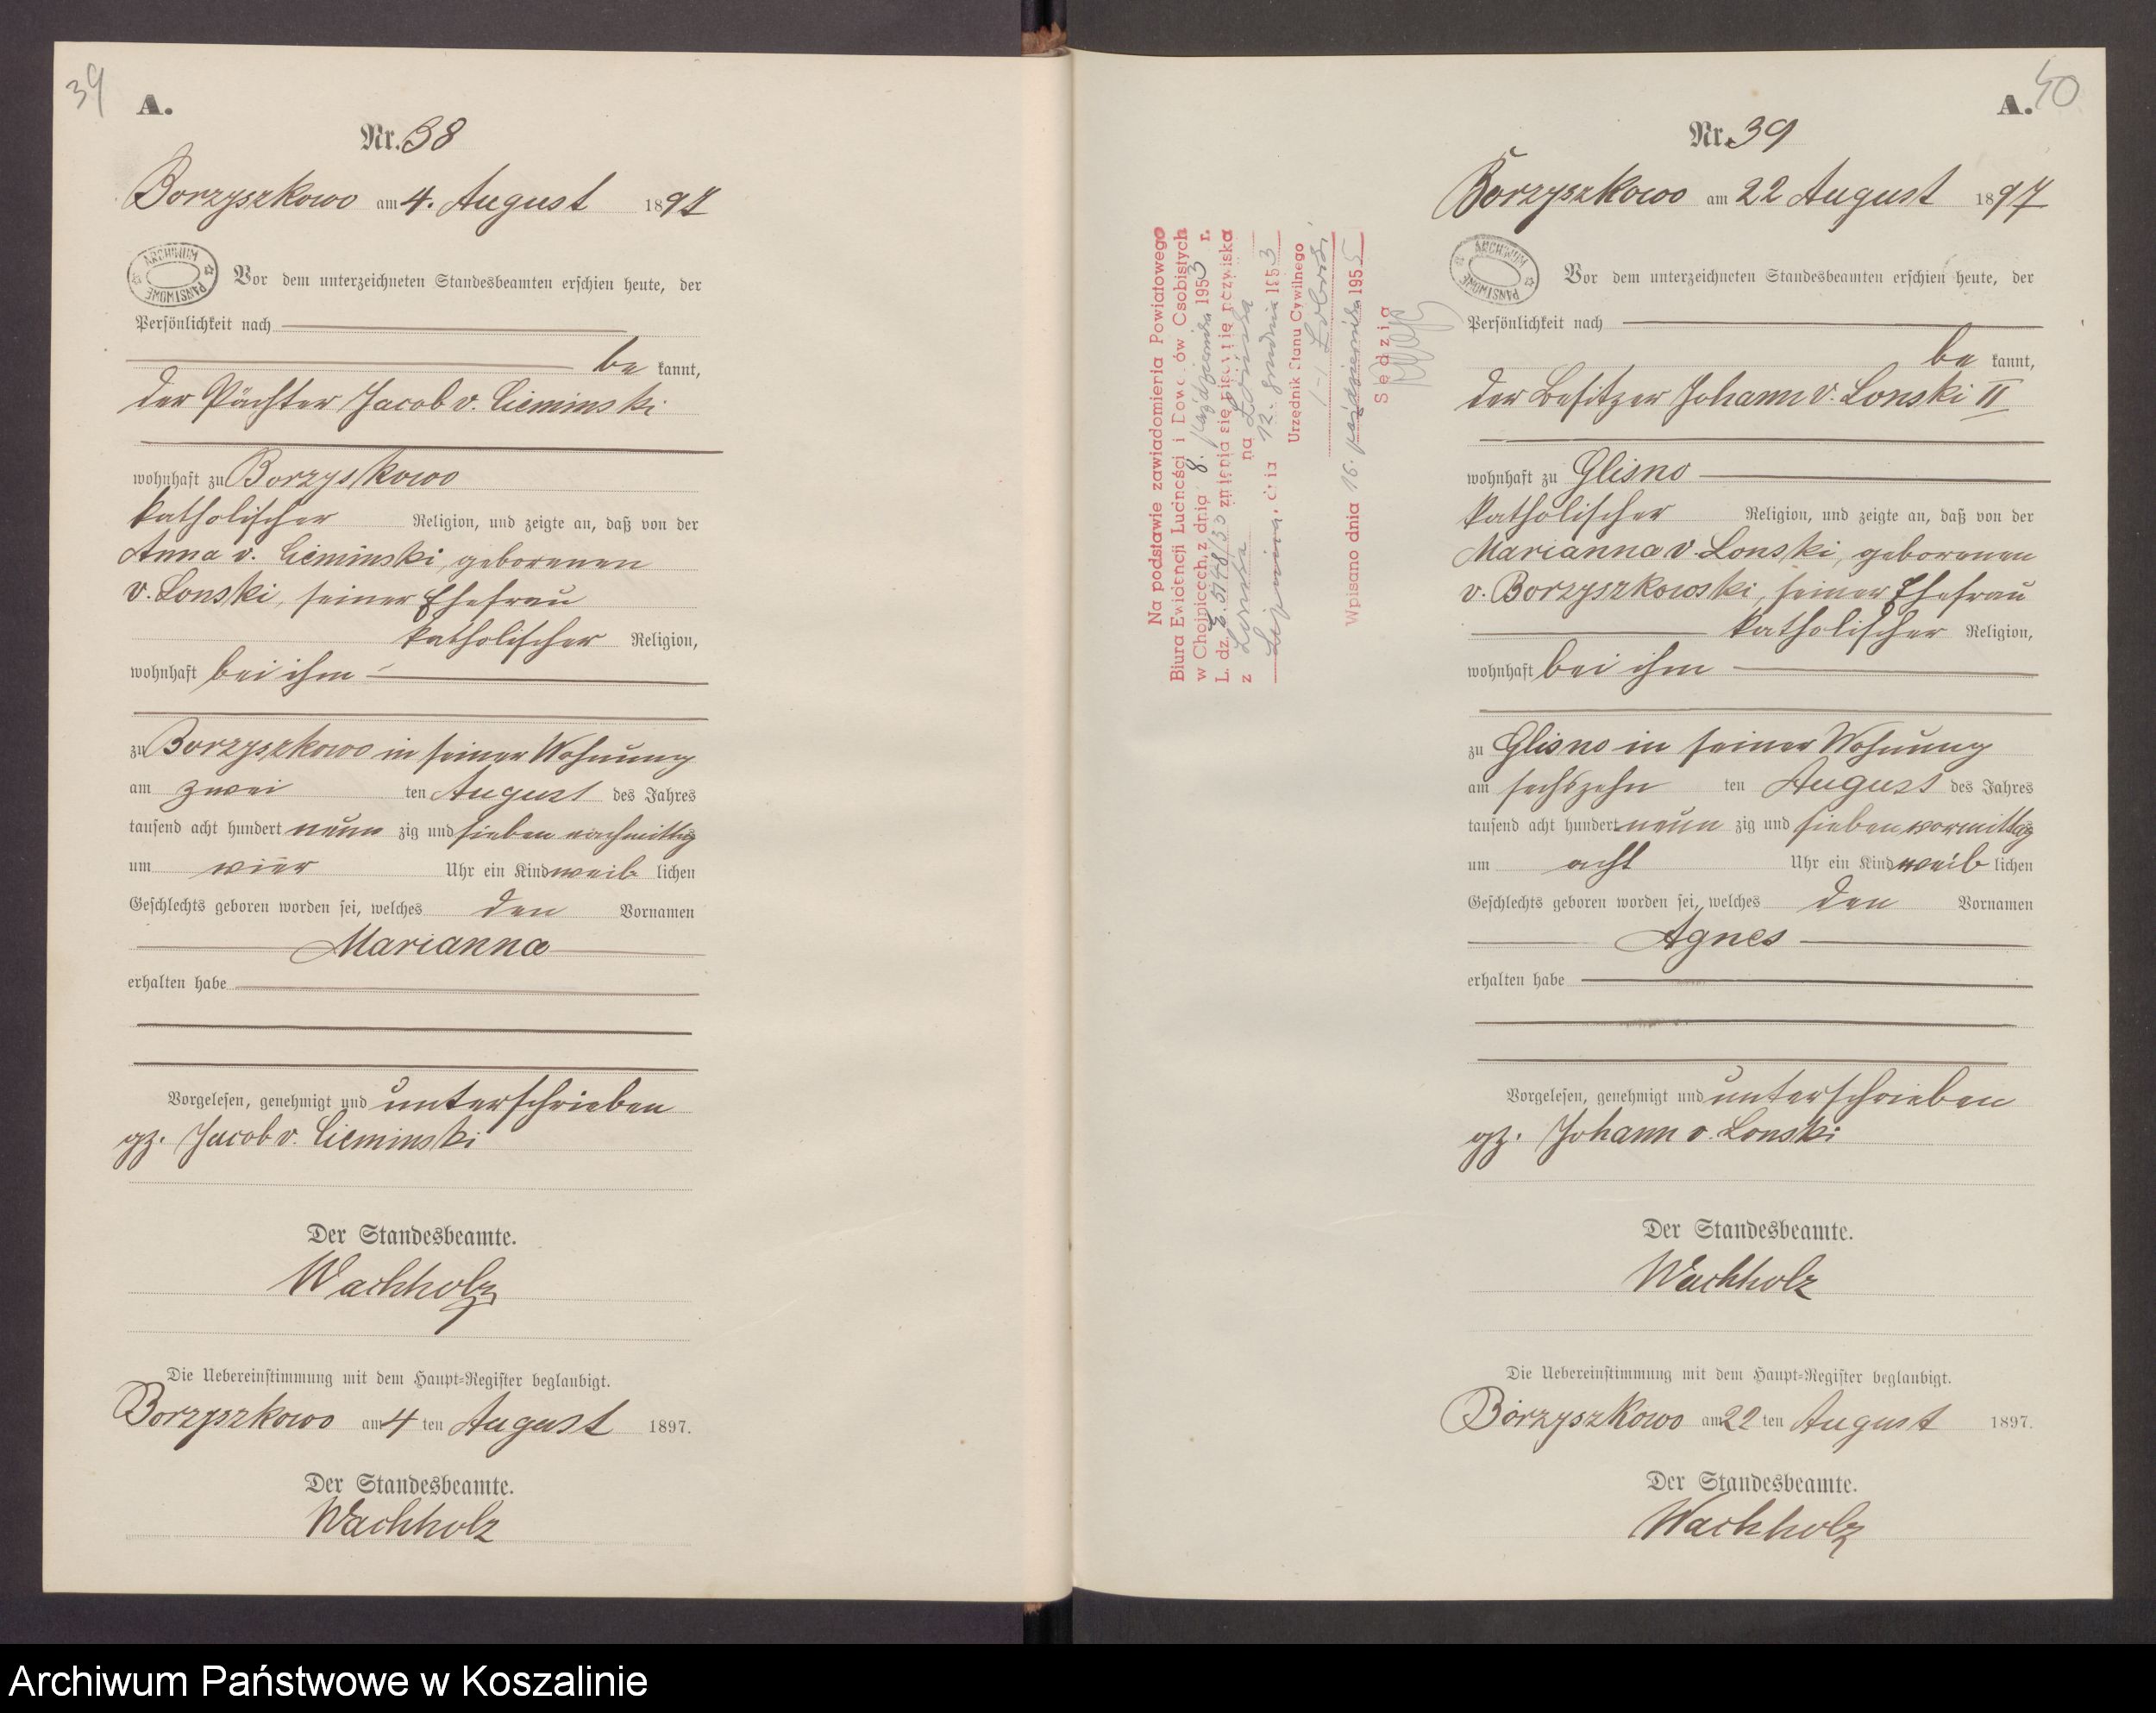 39
A.
Nr. 38
Borzyszkowo am 4. August 1897
ARCHIWUM PAŃSTWOWE
Vor dem unterzeichneten Standesbeamten erschien heute, der
Persönlichkeit nach
be kannt,
der Pächter Jacob v. Cieminski
wohnhaft zu Borzyskowo
katholischer Religion, und zeigte an, daß von der
Anna v. Cieminski, geborenen
v. Lonski, seiner Ehefrau
katholischer Religion,
wohnhaft bei ihm
zu Borzyszkowo in seiner Wohnung
am zwei ten August des Jahres
tausend acht hundert neun zig und sieben nachmittag
um vier Uhr ein Kind weib lichen
Geschlechts geboren worden sei, welches den Vornamen
Marianna
erhalten habe
Vorgelesen, genehmigt und unterschrieben
gz. Jacob v. Cieminski
Der Standesbeamte.
Wachholz
Die Uebereinstimmung mit dem Haupt=Register beglaubigt.
Borzyszkowo am 4 ten August 1897.
Der Standesbeamte.
Wachholz
Na podstawie zawiadomienia Powiatowego
Biura Ewidencji Ludności i Dowodów Osobistych
w Chojnicach, z dnia 8. października 1953 r.
L. dz. zmienia się pisownię nazwiska
z Lonska na Łońska
dnia 12. grudnia 1953
Urzędnik Stanu Cywilnego
Wpisano dnia 16. października 1955
Sędzia
40
A.
Nr. 39
Borzyszkowo am 22 August 1897
ARCHIWUM PAŃSTWOWE
Vor dem unterzeichneten Standesbeamten erschien heute, der
Persönlichkeit nach
be kannt,
der Besitzer Johann v. Lonski II
wohnhaft zu Glisno
katholischer Religion, und zeigte an, daß von der
Marianna v. Lonski, geborenen
v. Borzyszkowski, seiner Ehefrau
katholischer Religion,
wohnhaft bei ihm
zu Glisno in seiner Wohnung
am sechszehn ten August des Jahres
tausend acht hundert neun zig und sieben vormittag
um acht Uhr ein Kind weib lichen
Geschlechts geboren worden sei, welches den Vornamen
Agnes
erhalten habe
Vorgelesen, genehmigt und unterschrieben
gz. Johann v. Lonski
Der Standesbeamte.
Wachholz
Die Uebereinstimmung mit dem Haupt=Register beglaubigt.
Borzyszkowo am 22 ten August 1897.
Der Standesbeamte.
Wachholz
Archiwum Państwowe w Koszalinie